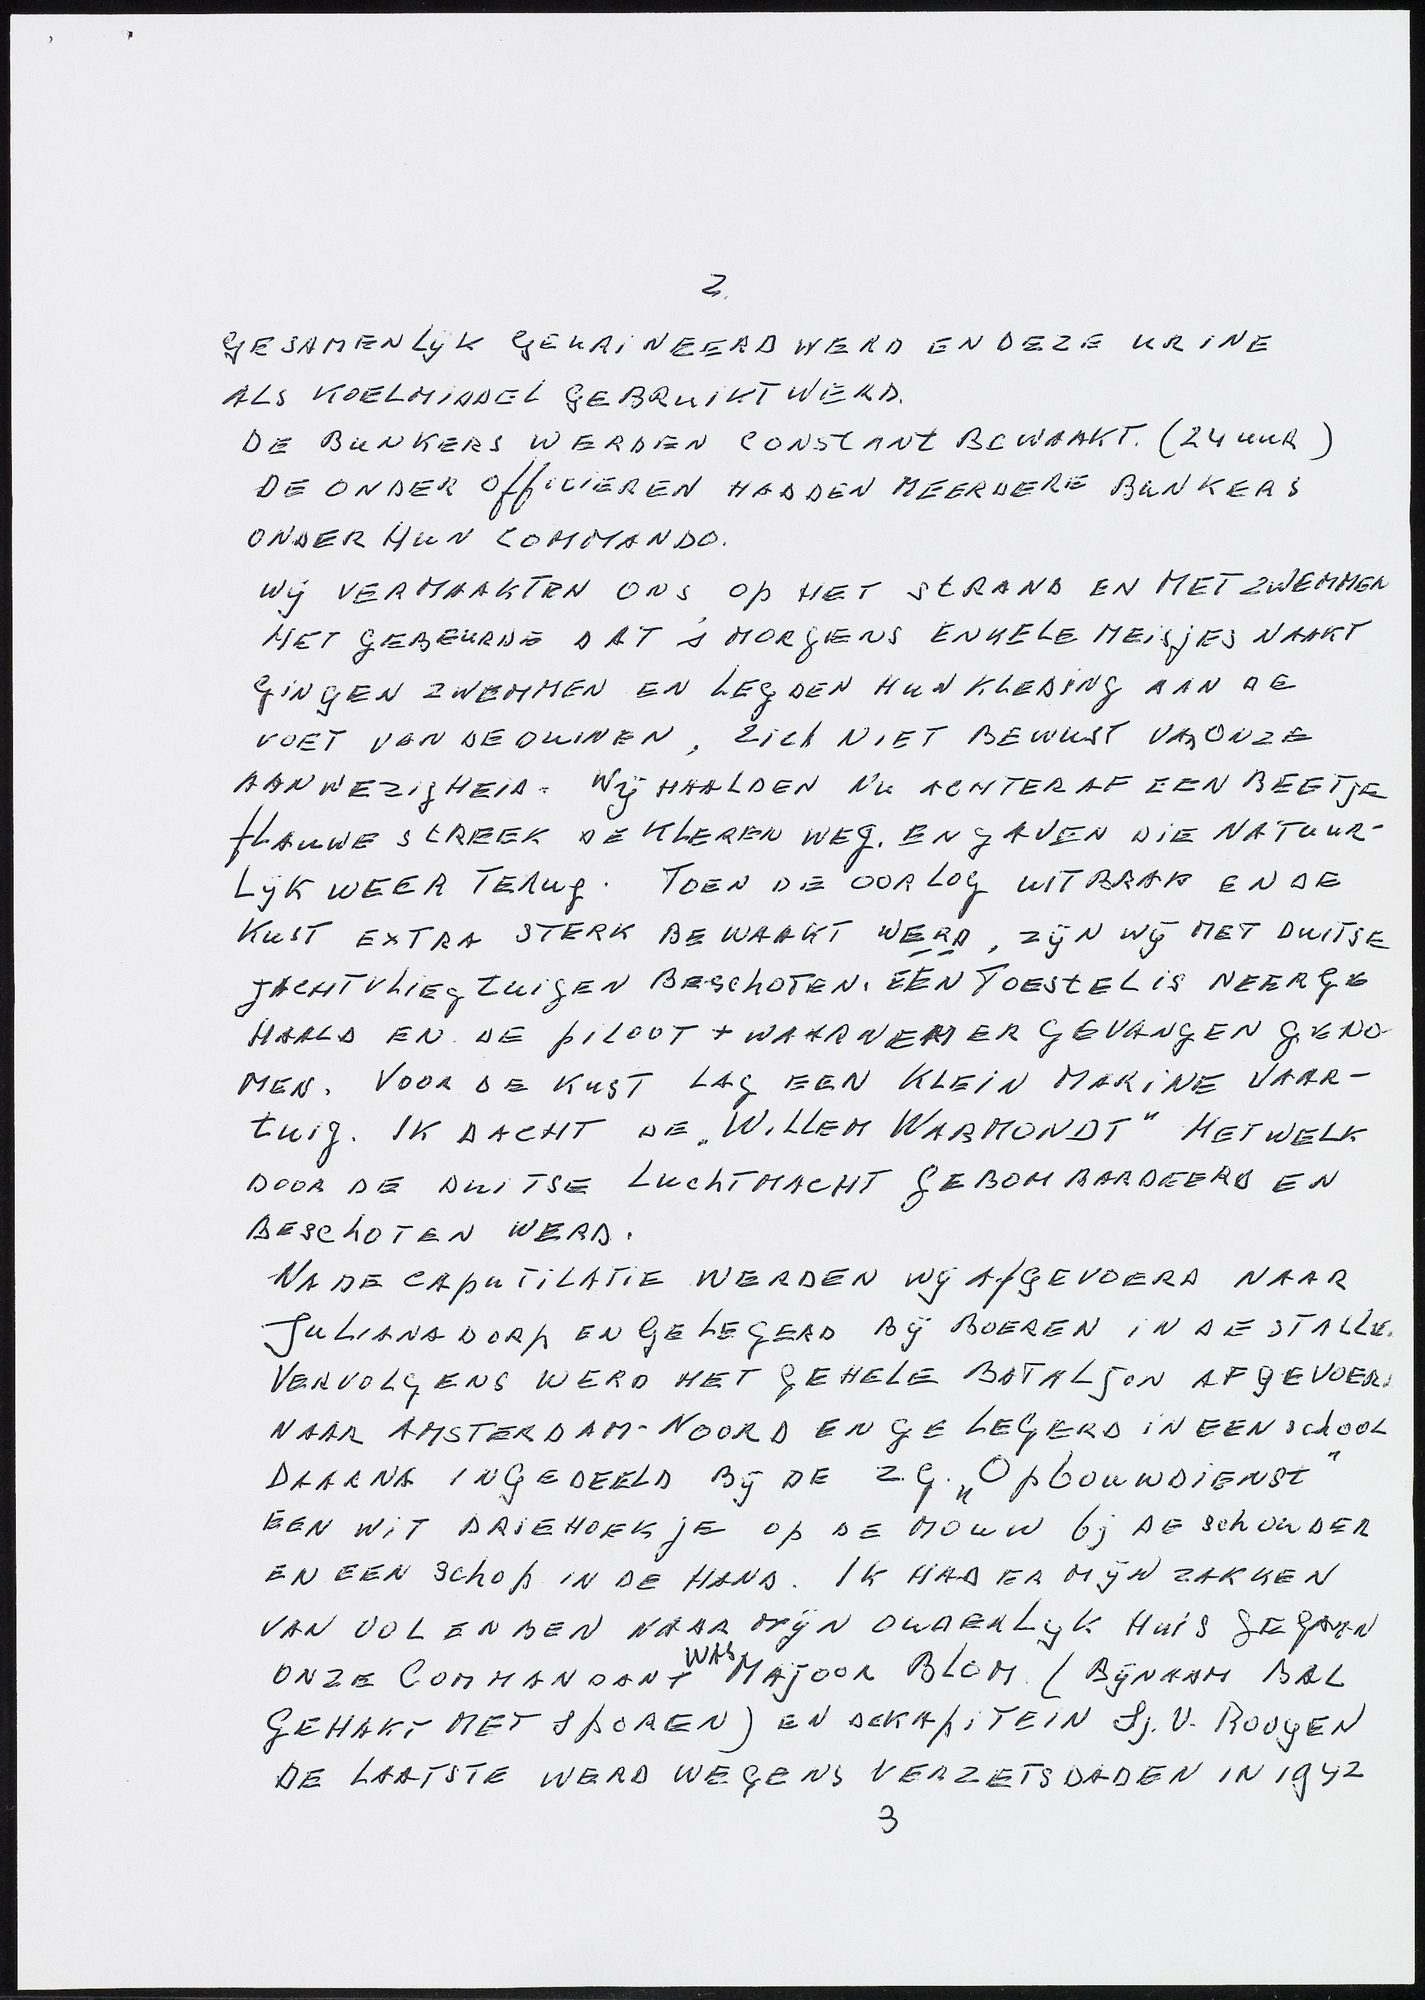 2.
GESAMENLIJK GEURINEERD WERD EN DEZE URINE
ALS KOELMIDDEL GEBRUIKT WERD.
DE BUNKERS WERDEN CONSTANT BEWAAKT. (24 UUR)
DE ONDER OFFICIEREN HADDEN MEERDERE BUNKERS
ONDER HUN COMMANDO.
WIJ VERMAAKTEN ONS OP HET STRAND EN MET ZWEMMEN
HET GEBEURDE DAT 's MORGENS ENKELE MEISJES NAAKT
GINGEN ZWEMMEN EN LEGDEN HUN KLEDING AAN DE
VOET VAN DE DUINEN, ZICH NIET BEWUST VAN ONZE
AANWEZIGHEID. WIJ HAALDEN NU ACHTERAF EEN BEETJE
FLAUWE STREEK DE KLEREN WEG. EN GAVEN DIE NATUUR-
LIJK WEER TERUG. TOEN DE OORLOG UITBRAK EN DE
KUST EXTRA STERK BEWAAKT WERD, ZIJN WIJ MET DUITSE
JACHTVLIEGTUIGEN BESCHOTEN. ÉÉN TOESTEL IS NEERGE
HAALD EN DE PILOOT + WAARNEMER GEVANGEN GENO
MEN. VOOR DE KUST LAG EEN KLEIN MARINE VAAR-
TUIG. IK DACHT DE „WILLEM WARMONDT" HETWELK
DOOR DE DUITSE LUCHTMACHT GEBOMBARDEERD EN
BESCHOTEN WERD.
NA DE CAPUTILATIE WERDEN WIJ AFGEVOERD NAAR
JULIANADORP EN GELEGERD BIJ BOEREN IN DE STALLE.
VERVOLGENS WERD HET GEHELE BATALJON AFGEVOERD
NAAR AMSTERDAM-NOORD EN GELEGERD IN EEN SCHOOL
DAARNA INGEDEELD BIJ DE Z.G. „OPBOUWDIENST"
EEN WIT DRIEHOEKJE OP DE MOUW BIJ DE SCHOUDER
EN EEN SCHOP IN DE HAND. IK HAD ER MIJN ZAKKEN
VAN VOL EN BEN NAAR MIJN OUDERLIJK HUIS GEGAAN
ONZE COMMANDANT WAS MAJOOR BLOM. (BIJNAAM BAL
GEHAKT MET SPOREN) EN DE KAPITEIN SJ. V. ROOYEN
DE LAATSTE WERD WEGENS VERZETSDADEN IN 1942
3